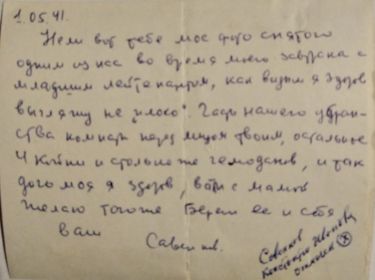 1.05.41.
Нели вот тебе мое фото снятого
одним из нас во время моего завтрака с
младшим лейтенантом, как видишь я здоров
выгляжу не плохо. Часть нашего убран-
ства комнаты перед лицом твоим, остальное
4 койки и столько же чемоданов, и так
дорогая моя я здоров, Вам с мамой
желаю того же Береги ее и себя
ваш
Савенков